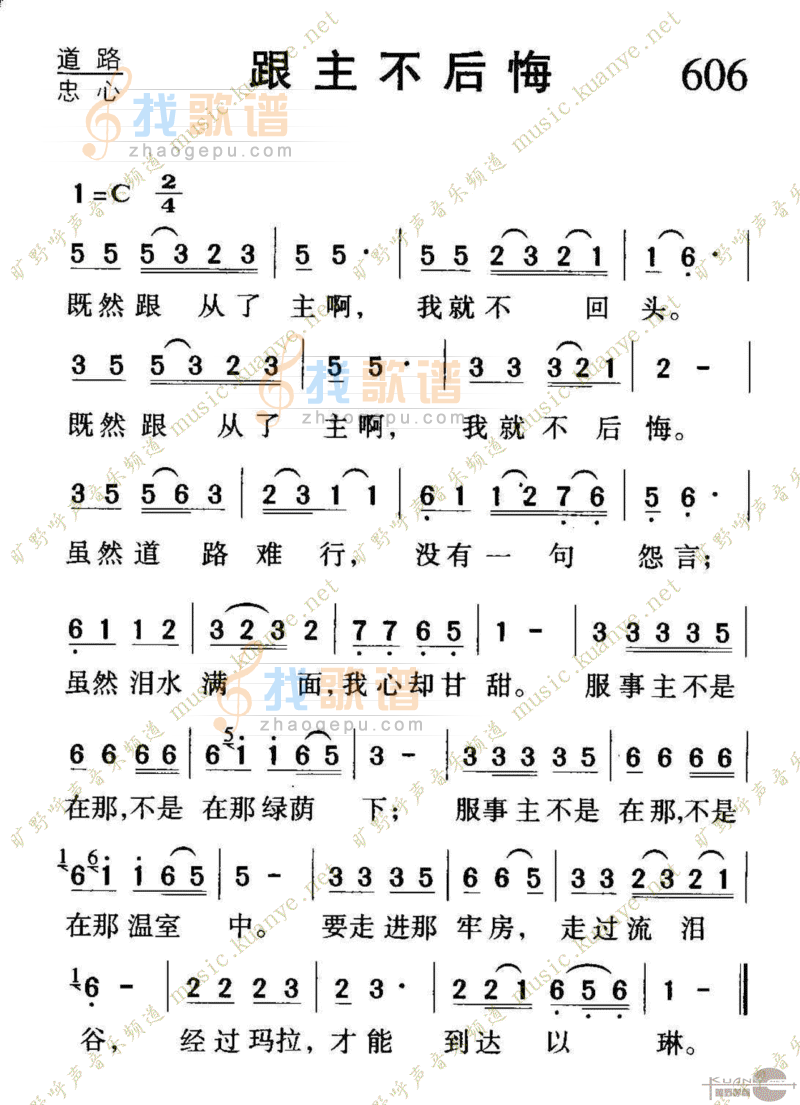 道路
忠心
跟主不后悔
606
找歌谱
zhaogepu.com
1=C 2/4
5 5 5 3 2 3 | 5 5· | 5 5 2 3 2 1 | 1 6· |
既然跟 从了 主啊, 我就不 回头。
3 5 5 3 2 3 | 5 5· | 3 3 3 2 1 | 2 - |
既然跟 从了 主啊, 我就不后悔。
3 5 5 6 3 | 2 3 1 1 | 6 1 1 2 7 6 | 5 6· |
虽然道 路难 行, 没有一 句 怨言;
6 1 1 2 | 3 2 3 2 | 7 7 6 5 | 1 - | 3 3 3 3 5 |
虽然泪水满 面,我心却甘 甜。 服事主不是
6 6 6 6 | 5 6 i i 6 5 | 3 - | 3 3 3 3 5 | 6 6 6 6 |
在那,不是 在那绿荫 下; 服事主不是 在那,不是
1 6 6 i i 6 5 | 5 - | 3 3 3 5 | 6 6 5 | 3 3 2 3 2 1 |
在那温室 中。 要走进那 牢房, 走过流 泪
1 6 - | 2 2 2 3 | 2 3· | 2 2 1 6 5 6 | 1 - ‖
谷, 经过玛拉,才能 到达 以 琳。
旷野呼声音乐频道 music.kuanye.net